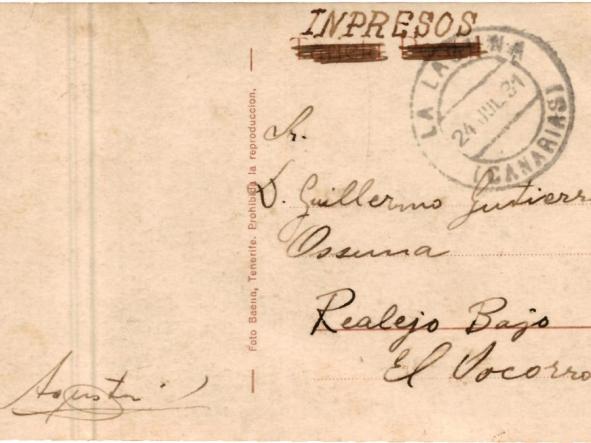 INPRESOS
LA LAGUNA
24 JUL.31
(CANARIAS)
Sr.
D. Guillermo Gutierr
Ossuna
Realejo Bajo
El Socorro
Foto Baena, Tenerife. Prohibida la reproduccion.
Agustin